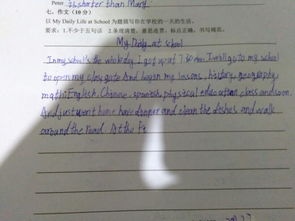 Peter is shorter than Mary.
七、作文（10分）
以 My Daily Life at School 为题描写你在学校的一天的生活。
要求：1.不少于五句话 2.条理清楚，意思连贯，标点正确，书写规范。
My Daily at school
In my school's the whole day. I get up at 7 I will go to my school
to open my class And began my lessons, history, geography
math English, Chinese, spanish, physical education class and soon.
And just went home have dinner and clean the dishes and walk
around the road. At the